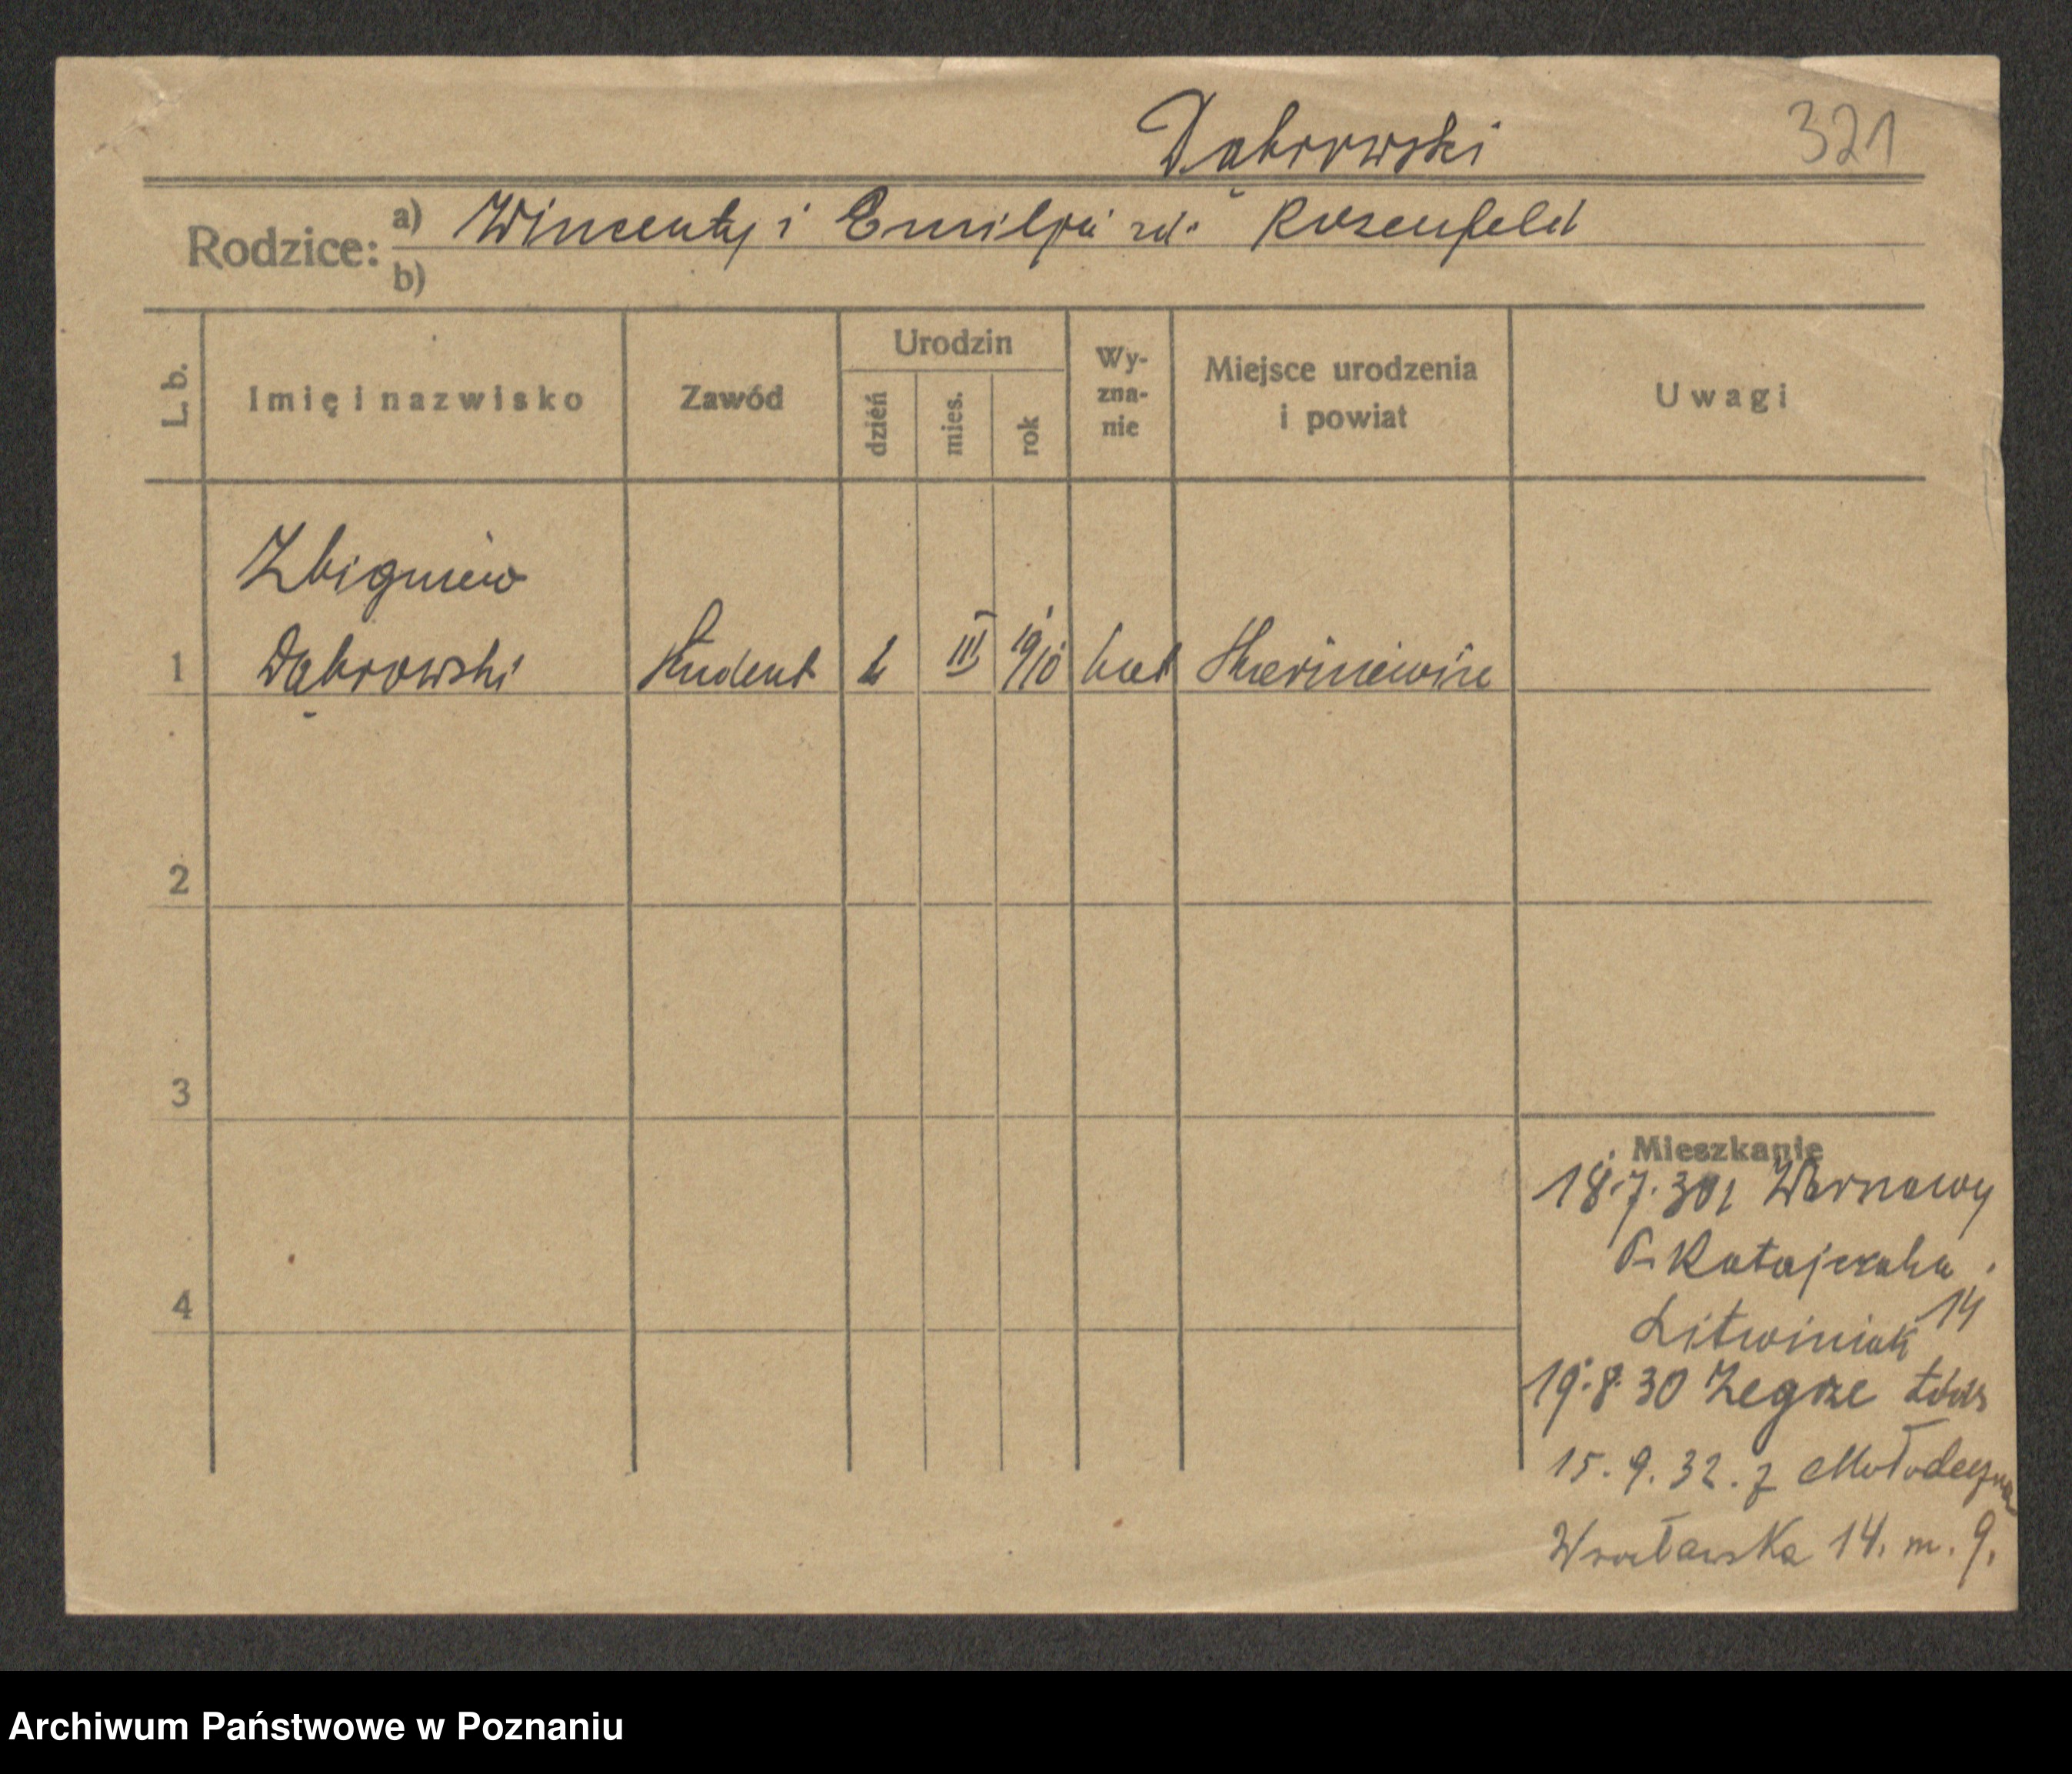 Dąbrowski 321
Rodzice: a) Wincenty i Emilja zd. Rosenfeld
b)
L. b. Imię i nazwisko Zawód Urodzin dzień mies. rok Wy-
zna-
nie Miejsce urodzenia
i powiat Uwagi
Zbigniew
1 Dąbrowski Student III 1910 kat Skierniewice
2
3
4
Mieszkanie
18.7.30 z Warszawy
Ratajczaka
14
Litwiniak
19.8.30 Zegrze
15.9.32. z Mołodeczna
Wrocławska 14. m. 9.
Archiwum Państwowe w Poznaniu